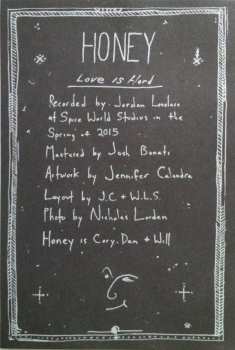 HONEY
Love is Hard
Recorded by Jordan Lovelace
at Spice World Studios in the
Spring of 2015
Mastered by Josh Bonati
Artwork by Jennifer Calandra
Layout by J.C + W.L.S.
Photo by Nicholas Lorden
Honey is Cory, Dan + Will